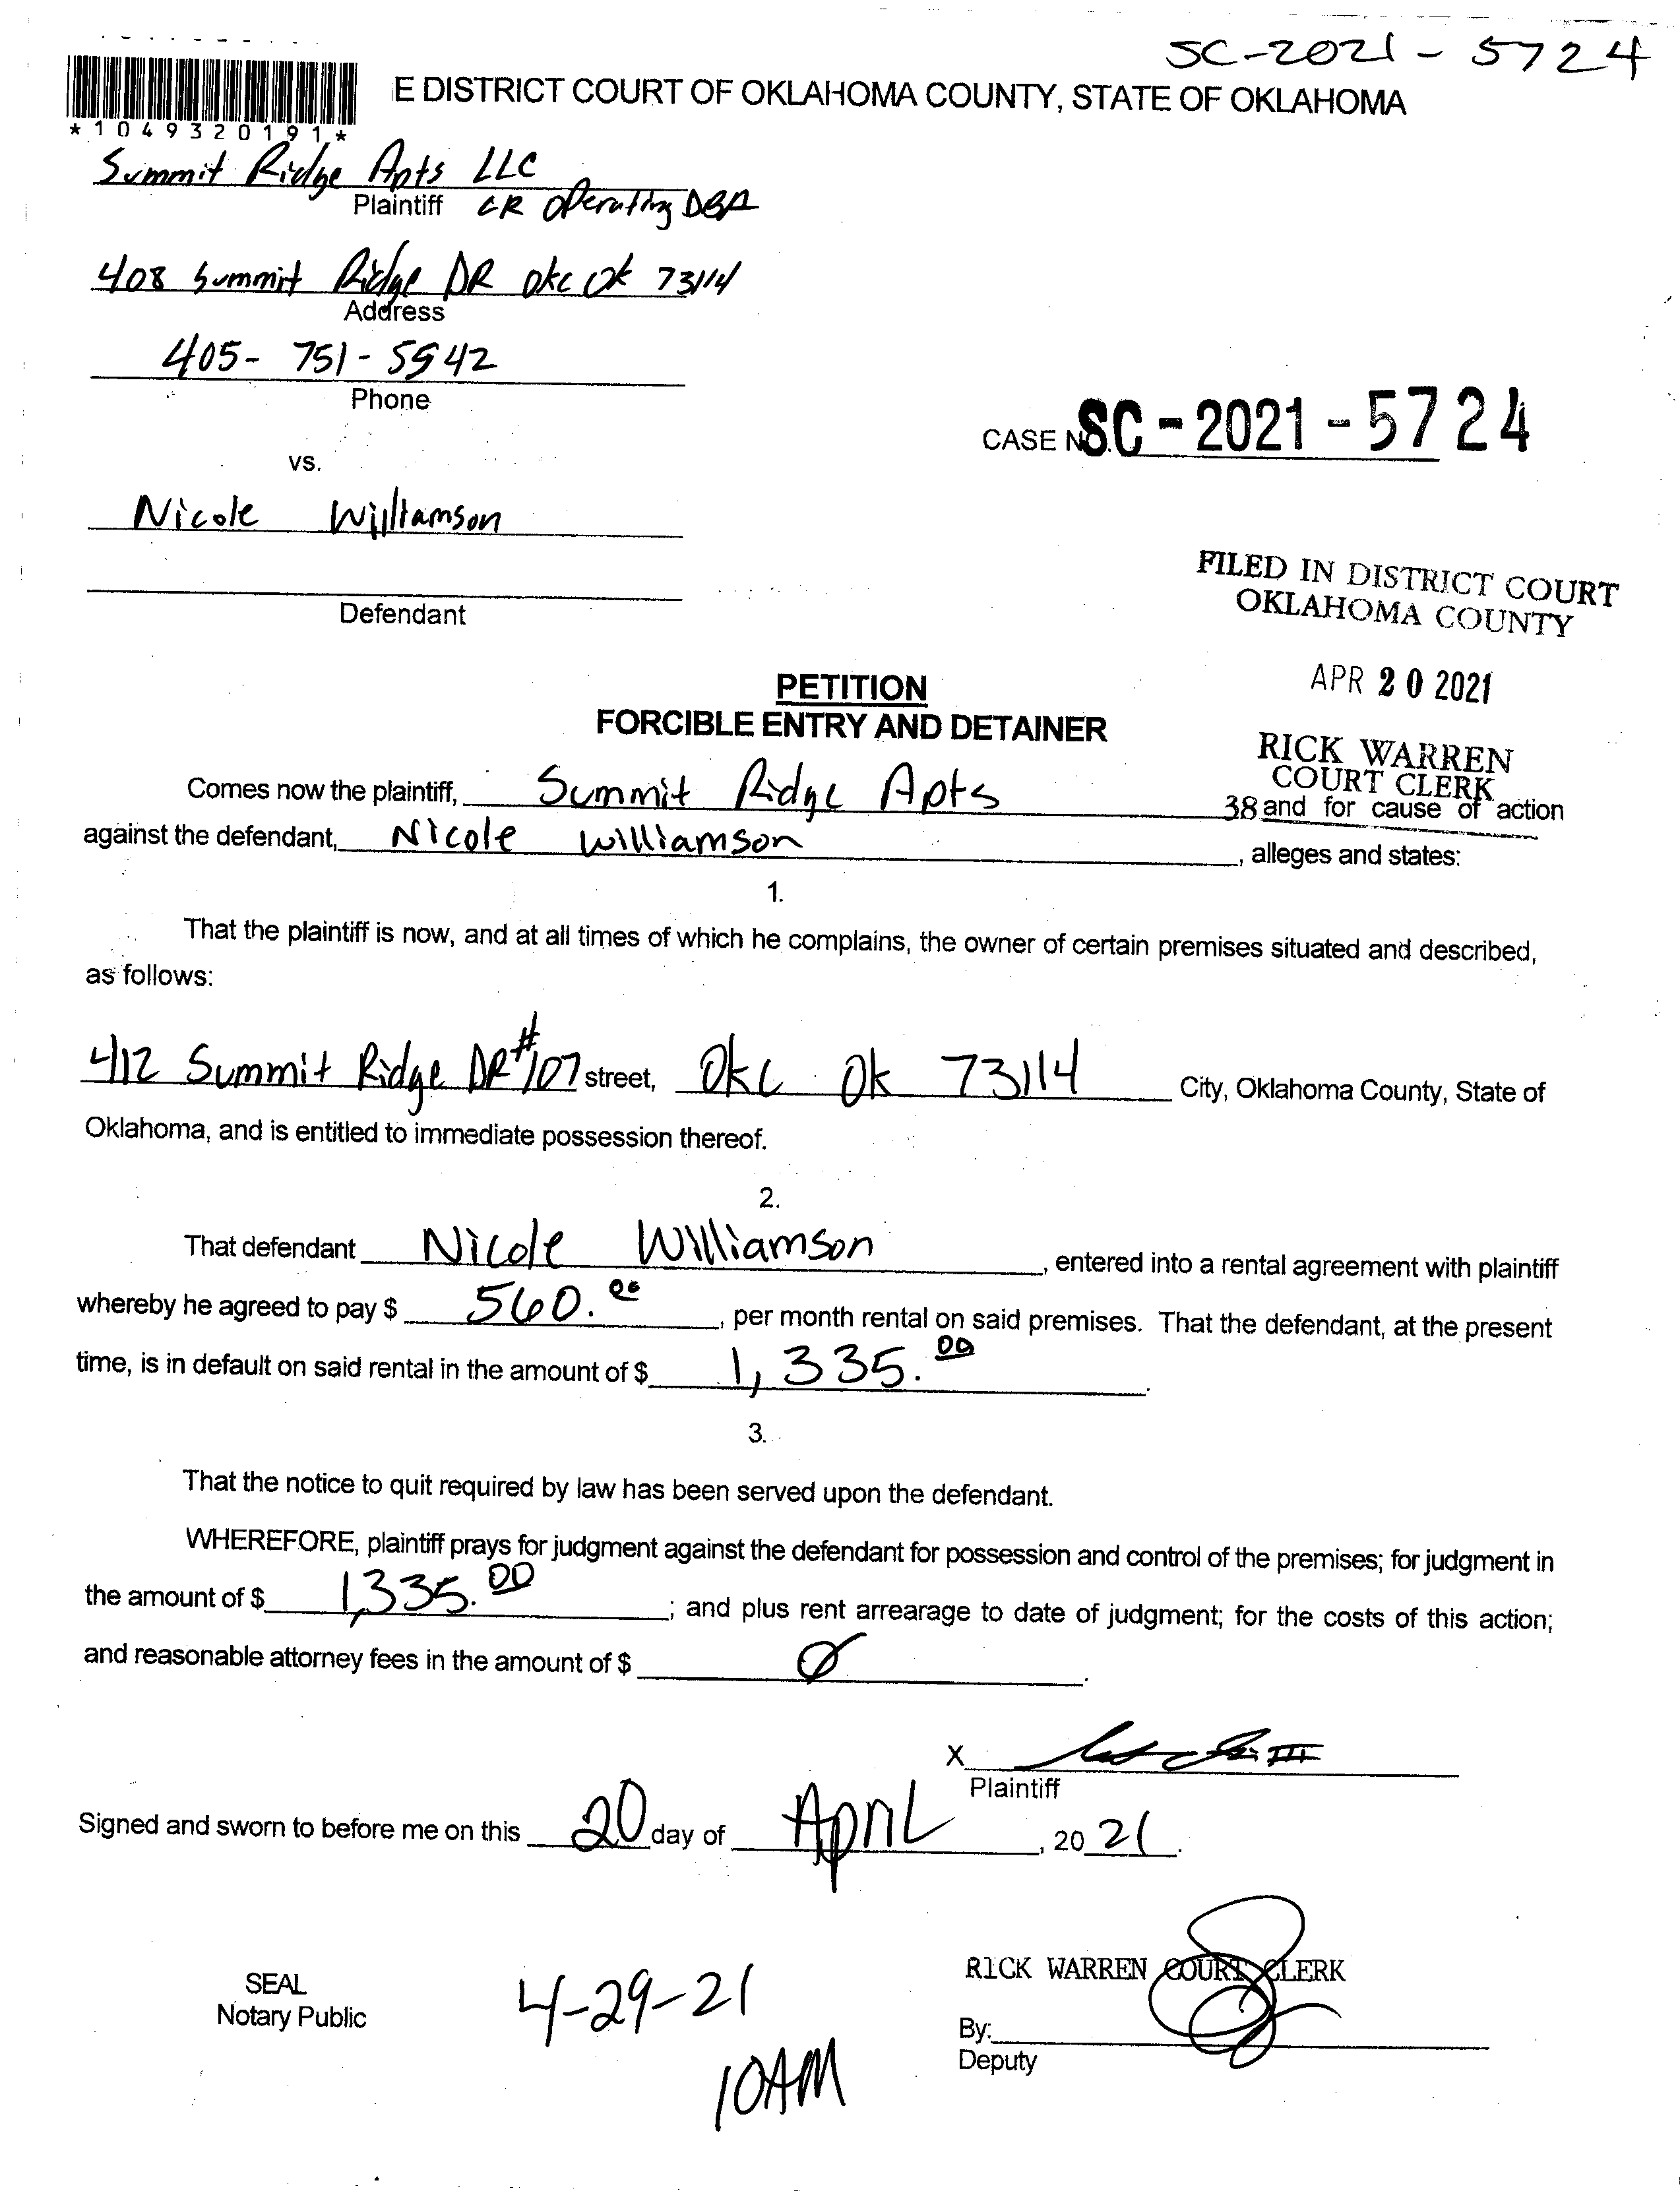 SC-2021-5724
E DISTRICT COURT OF OKLAHOMA COUNTY, STATE OF OKLAHOMA
*1049320191*
Summit Ridge Apts LLC
Plaintiff LR Operating DBA
408 Summit Ridge DR okc Ok 73114
Address
405-751-5942
Phone
CASE NO. SC-2021-5724
vs.
Nicole Williamson
Defendant
FILED IN DISTRICT COURT
OKLAHOMA COUNTY
APR 20 2021
PETITION
FORCIBLE ENTRY AND DETAINER
RICK WARREN
COURT CLERK
Comes now the plaintiff, Summit Ridge Apts 38 and for cause of action
against the defendant, Nicole Williamson, alleges and states:
1.
That the plaintiff is now, and at all times of which he complains, the owner of certain premises situated and described,
as follows:
412 Summit Ridge DR #107 street, Okc Ok 73114 City, Oklahoma County, State of
Oklahoma, and is entitled to immediate possession thereof.
2.
That defendant Nicole Williamson, entered into a rental agreement with plaintiff
whereby he agreed to pay $ 560.00, per month rental on said premises. That the defendant, at the present
time, is in default on said rental in the amount of $ 1,335.00.
3.
That the notice to quit required by law has been served upon the defendant.
WHEREFORE, plaintiff prays for judgment against the defendant for possession and control of the premises; for judgment in
the amount of $ 1,335.00; and plus rent arrearage to date of judgment; for the costs of this action;
and reasonable attorney fees in the amount of $ Ø.
X
Plaintiff
Signed and sworn to before me on this 20 day of April, 20 21.
SEAL
Notary Public
4-29-21
10AM
RICK WARREN COURT CLERK
By:
Deputy